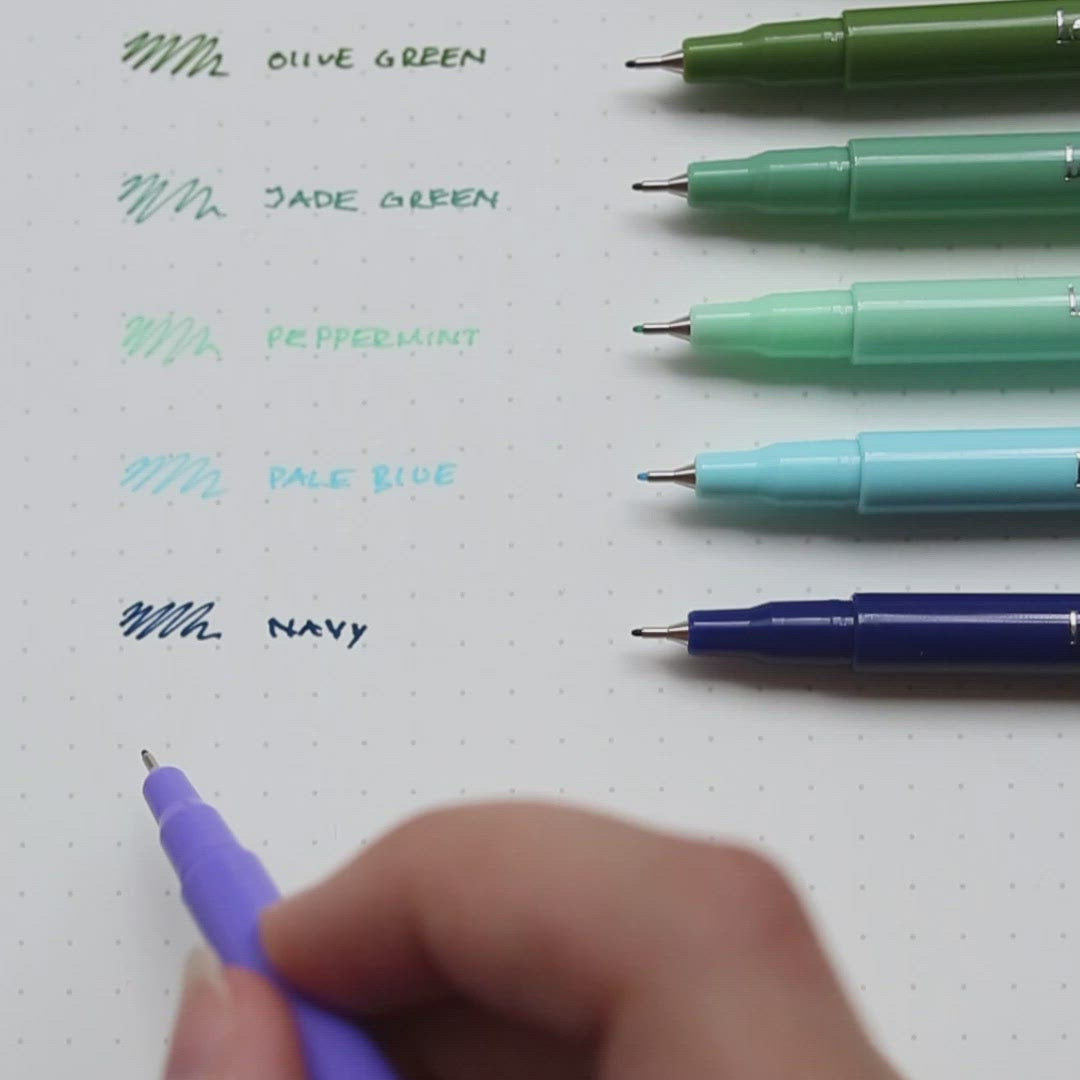 OLIVE GREEN
JADE GREEN
PEPPERMINT
PALE BLUE
NAVY